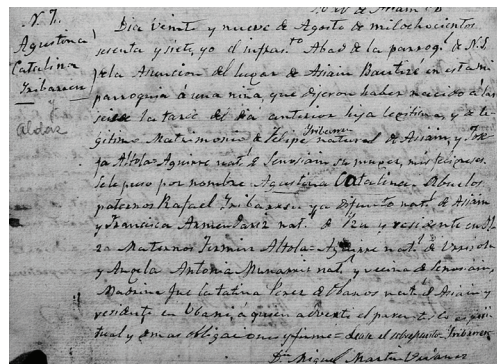 N. 7.
Agustona
Catalina
Iribarren
y
Aldaz
Dia veinte y nueve de Agosto de mil ochocientos
sesenta y siete, yo el infrasto Abad de la parroql de N.S.
de la Asuncion del lugar de Asiain Bauticé en esta mi
parroquia á una niña, que dijeron haber nacido á las
de la tarde del dia anterior hija legitima, y de le-
gitimo Matrimonio de Felipe Iribarren natural de Asiain, y
Altola-Aguirre natl de su mujer, mis feligreses.
Sele puso por nombre Agustona Catalina. Abuelos
paternos Rafael Iribarren ya difunto natl de Asiain
y Francisca Armendariz natl de Izu y residente en
Maternos Fermin Altola-Aguirre natl de
y Angela Antonia natl y vecina de
Madrina fue Catalina Perez de Obanos natl de Asiain y
residente en á quien adverti el parentesco espiri-
tual y demas obligaciones y firmé = Iribarren
Dn Miguel Martin